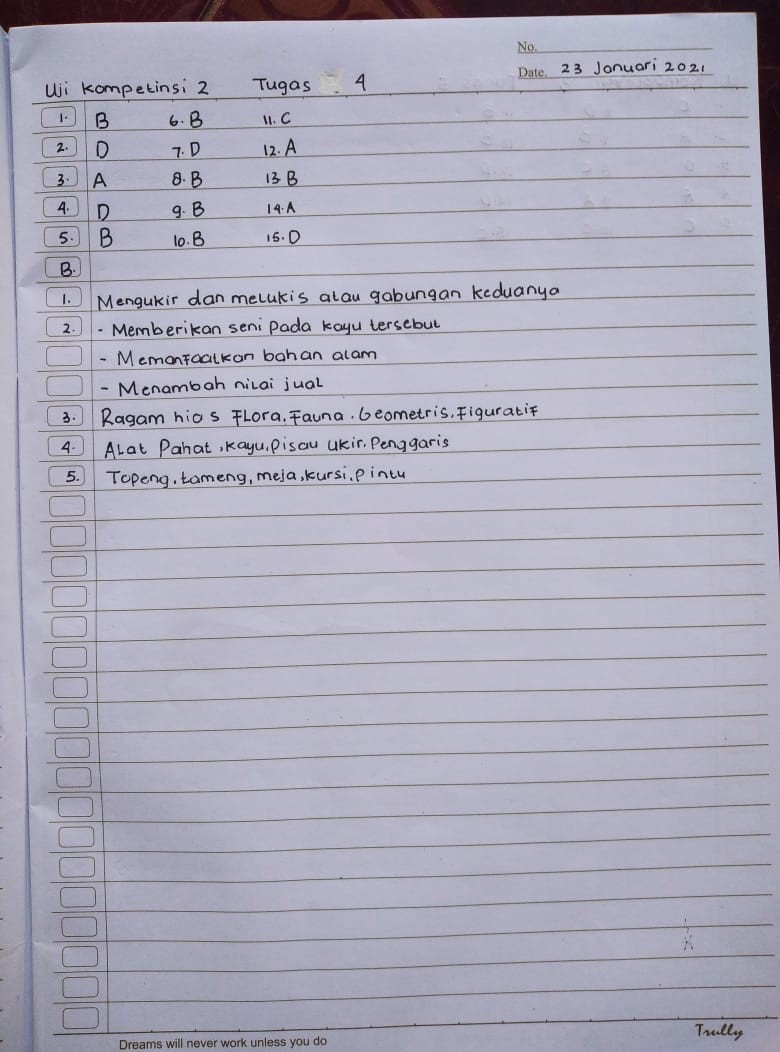 No.
Date. 23 Januari 2021
Uji Kompetinsi 2 Tugas 4
1. B 6. B 11. C
2. D 7. D 12. A
3. A 8. B 13 B
4. D 9. B 14. A
5. B 10. B 15. D
B.
1. Mengukir dan melukis atau gabungan keduanya
2. - Memberikan seni pada kayu tersebut
- Memanfaatkan bahan alam
- Menambah nilai jual
3. Ragam hias Flora, Fauna. Geometris, Figuratif
4. Alat Pahat, kayu, Pisau ukir. Penggaris
5. Topeng, tameng, meja, kursi, Pintu
Trully
Dreams will never work unless you do